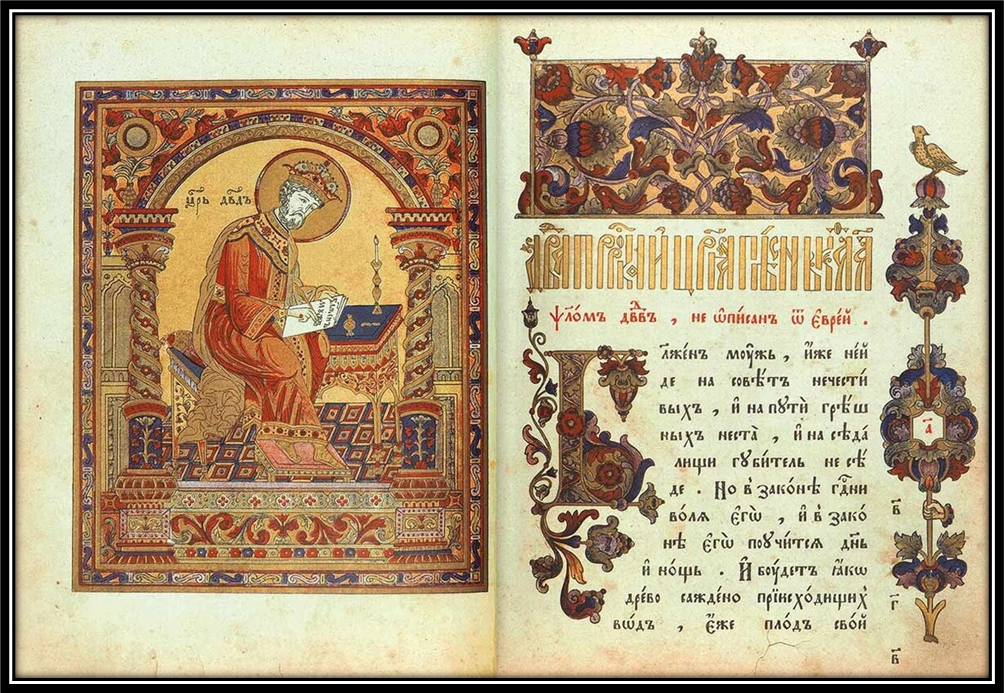 цр҃ь дв҃дъ
ѱл҇о́мъ дв҃двъ , не ѡпи́санъ ѿ є҆вре́й .
Бл҃же́нъ моу́жь , и҆́же не и҆́
де на совѣ́тъ нечести́
выхъ , и҆ на путѝ грѣ́ш
ныхъ неста̀ , и҆ на сѣда́
лищи губи́тель не сѣ́
де . Но в̾ зако́нѣ гд҇ни
во́лѧ є҆гѡ̀ , и҆ в̾ зако́
нѣ є҆гѡ̀ поучи́тсѧ дн҃ь
и҆ но́щь . И҆ боу́детъ ꙗ҆́кѡ
дре́во сажде́но прїисхо́дищих̾
во́дъ , є҆́же пло́дъ сво́й
а҃
в҃
г҃